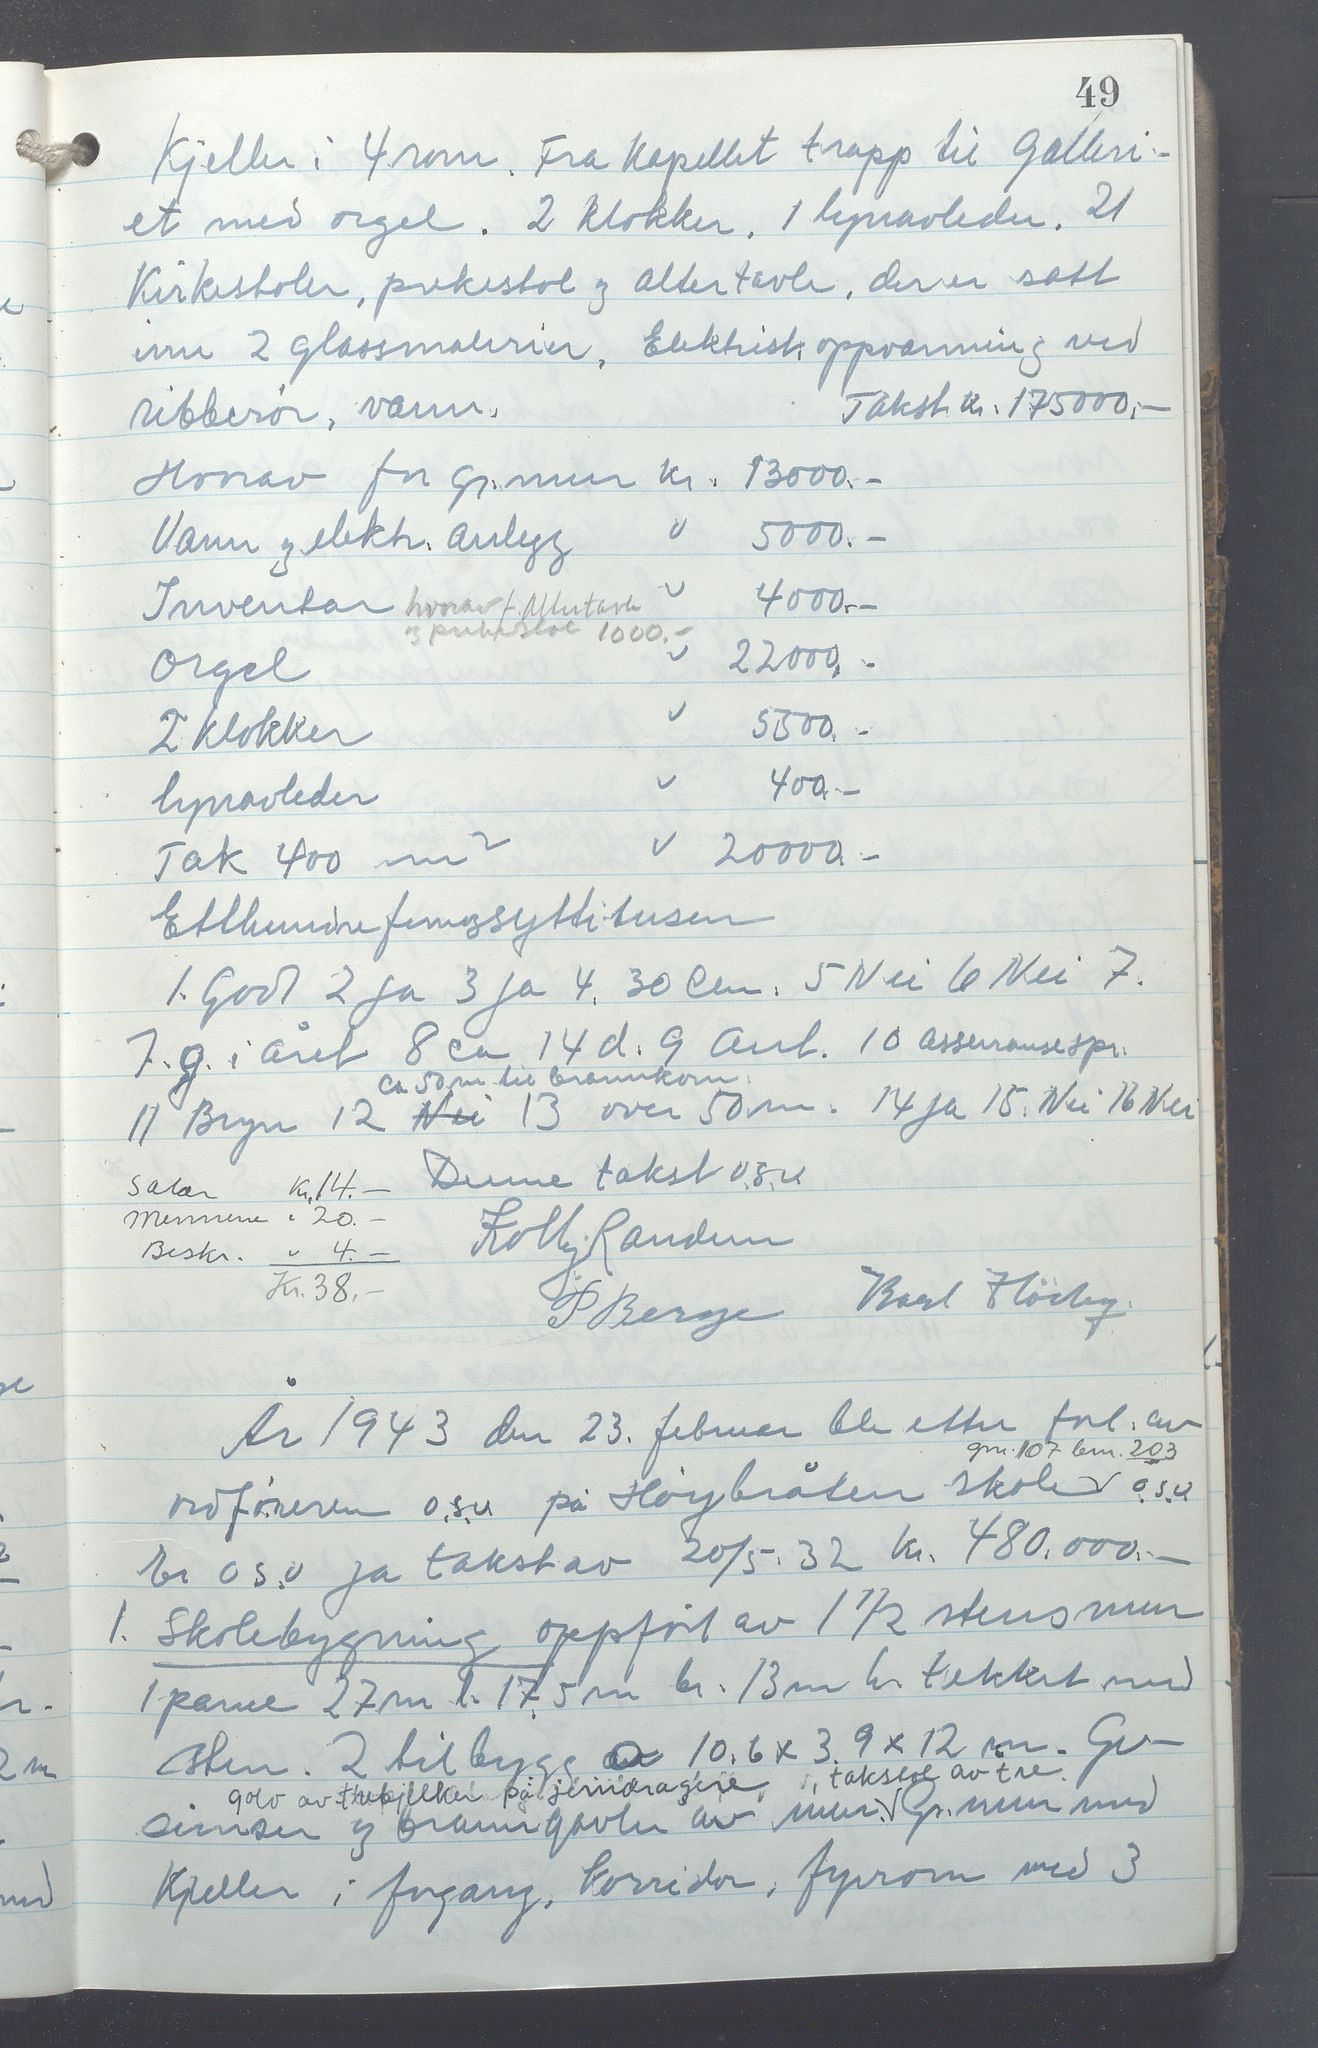 49
Kjeller i 4 rom. Fra kapellet trapp til Galleri-
et med orgel. 2 klokker. 1 lynavleder. 21
Kirkestoler, prekestol og altertavle, der er satt
inn 2 glassmalerier. Elektrisk oppvarming ved
ribberör, vann. Takst kr. 175000.-
Hvorav for gr.mur kr. 13000.-
Vann og elektr. anlegg " 5000.-
Inventar " 4000.-
hvorav f. Altertavle
og prekestol 1000.-
Orgel " 22000.-
2 klokker " 5500.-
lynavleder " 400.-
Tak 400 m² " 20000.-
Etthundre femogsyttitusen
1. God 2 ja 3 ja 4. 30 Cm. 5 Nei 6 Nei 7.
7. g. i året 8 ca 14 d. 9 Ant. 10 assuransespr.
ca 50 m til brannkom.
11 Bryn 12 Nei 13 over 50 m. 14 ja 15. Nei 16 Nei
Salær kr. 14.- Denne takst o.s.v
Mennene " 20.-
Beskr. " 4.-
Kr. 38.-
Kolbj. Randem
P Berge Karl Höiby.
År 1943 den 23. februar ble etter forl. av
gnr. 107 bnr. 203
ordföreren o.s.v på Höybråten skole o.s.v
Er o s.v ja takst av 20/5. 32 kr. 480.000.-
1. Skolebygning oppfört av 1 1/2 stens mur
1 parvel 27 m l. 17,5 m br. 13 m h. tekket med
sten. 2 tilbygg a 10.6 x 3.9 x 12 m. Ge-
golv av trebjelker på jerndragere, takstol av tre.
simser og branngavler av mur. Gr.mur med
Kjeller i forgang, korridor, fyrrom med 3